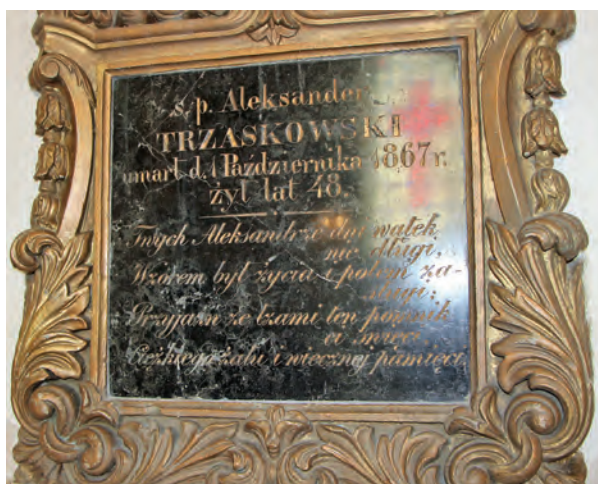 ś. p. Aleksander
TRZASKOWSKI
umarł d. 1 Października 1867 r.
żył lat 48.
Twych Aleksandrze dni wątek
nie długi,
Wzorem był życia i potęgi za-
sługi;
Przyjaźń ze łzami ten pomnik
ci święci,
Ciężkiego żalu i wiecznej pamięci.